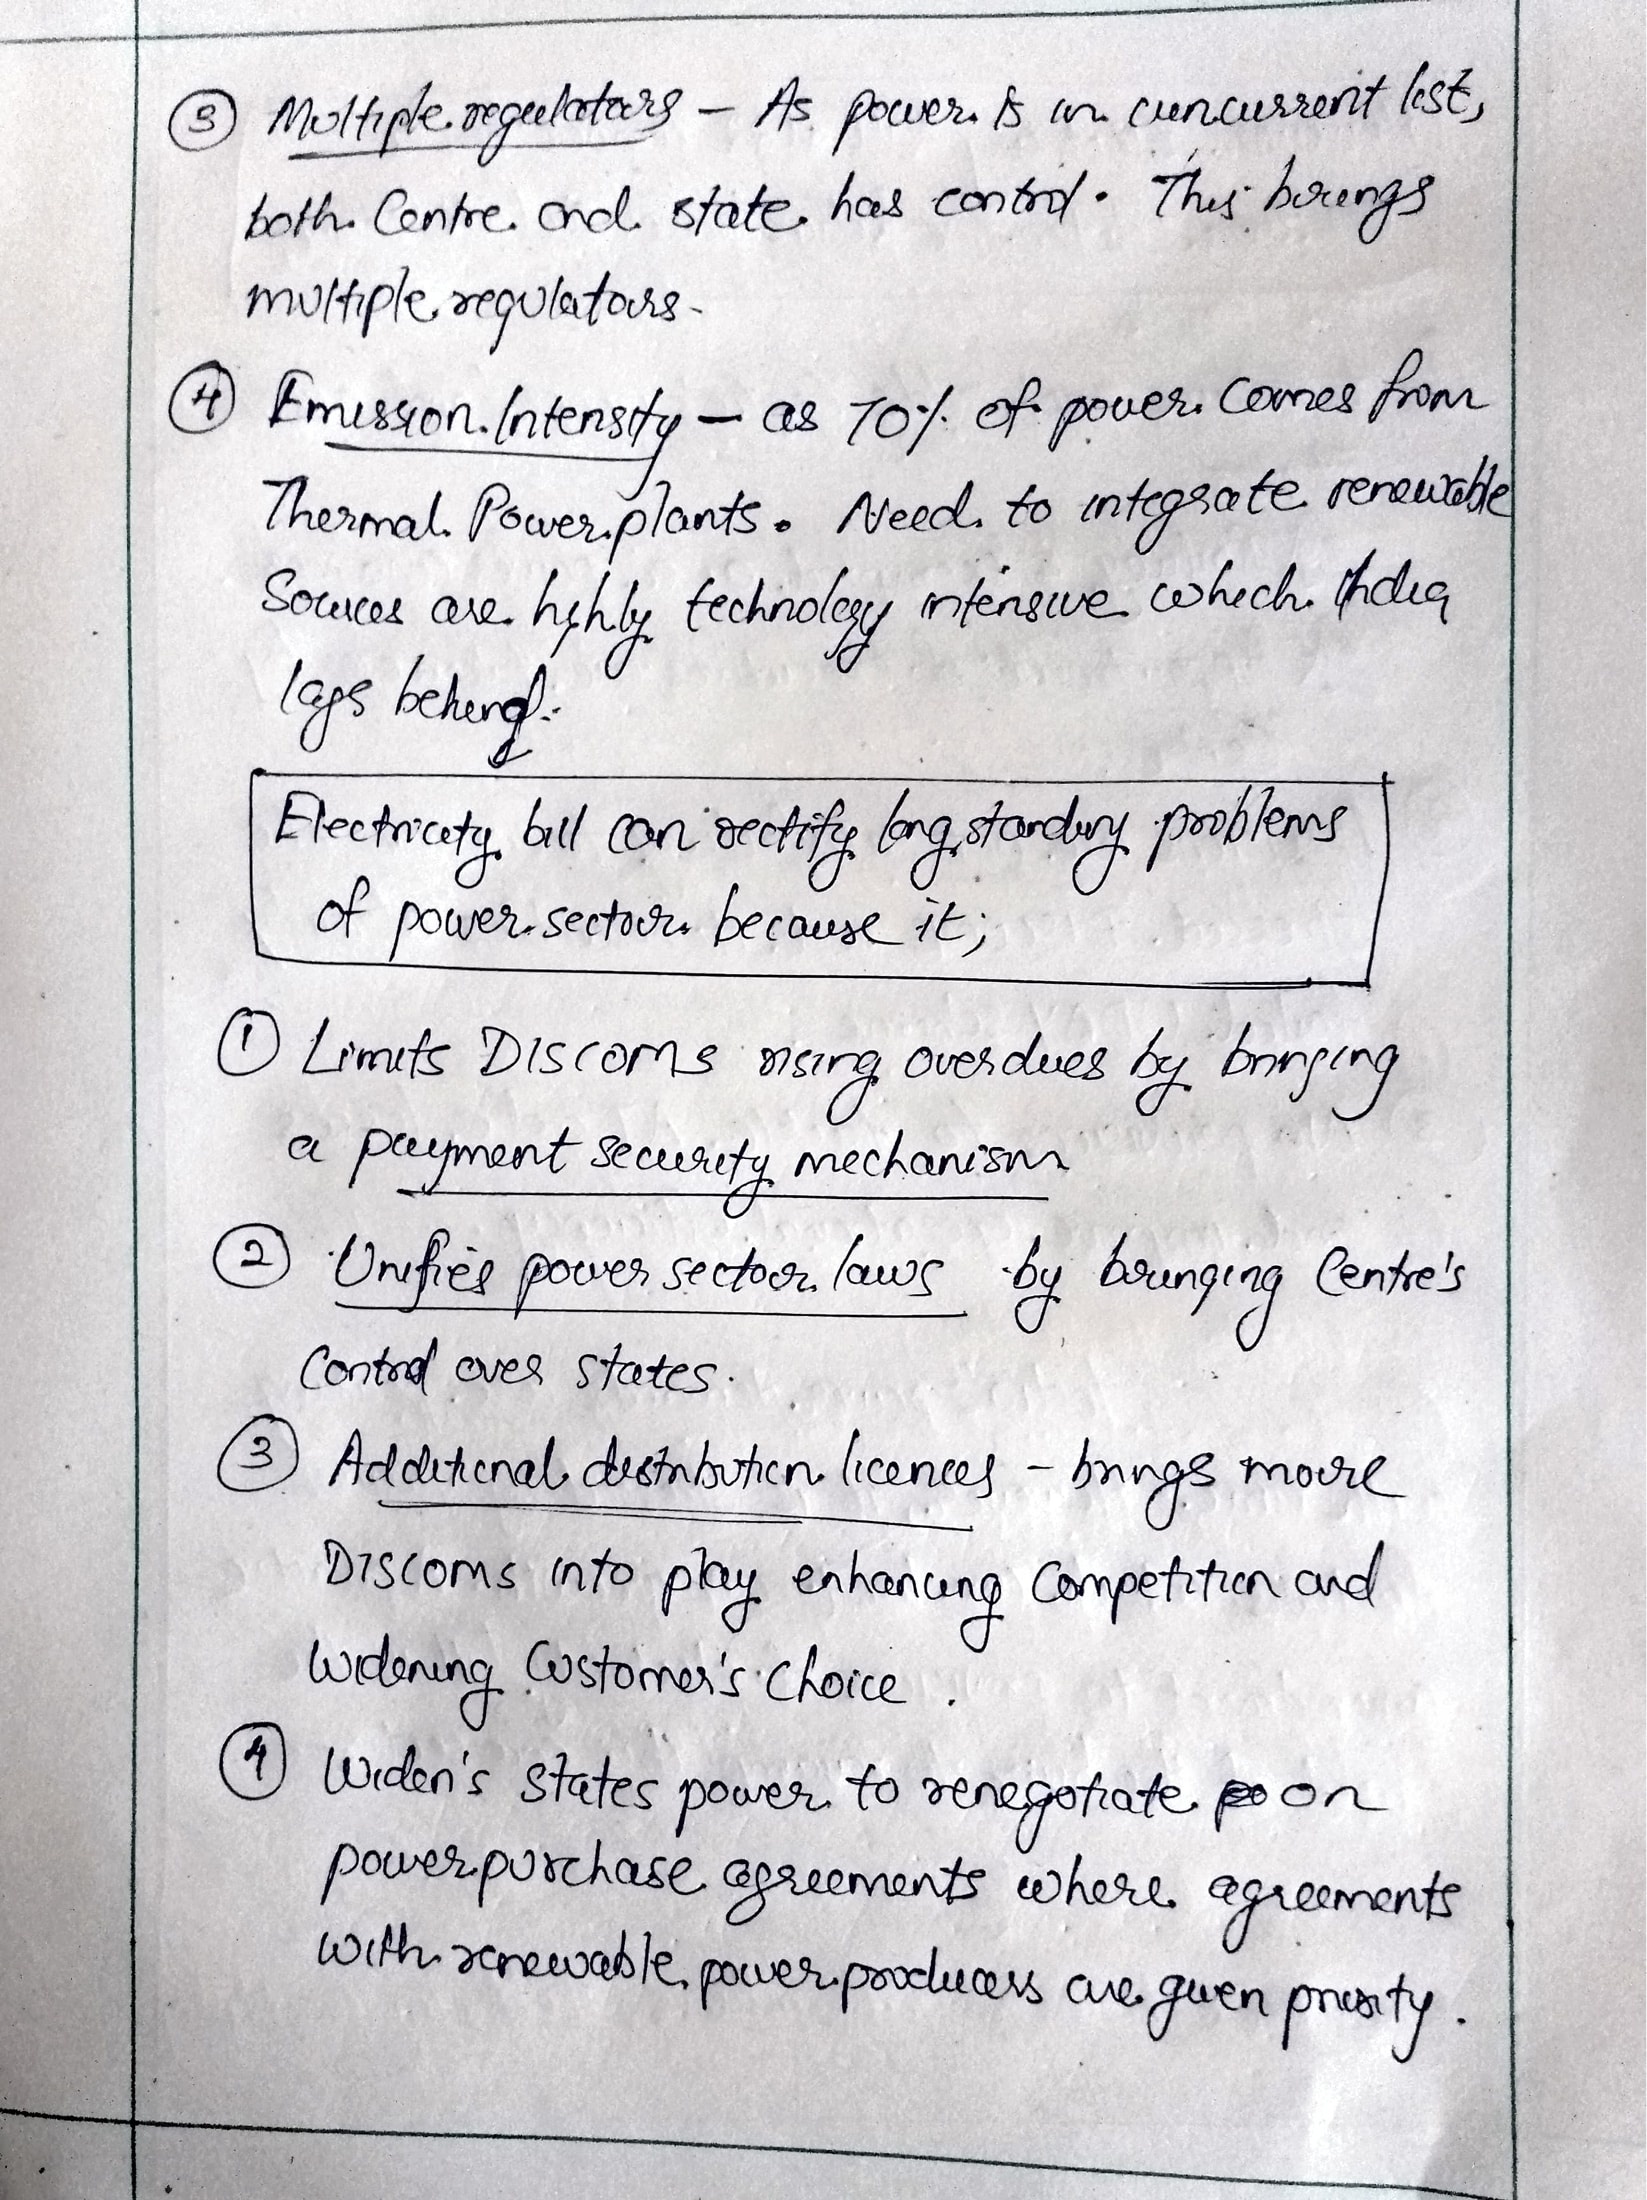 ③ Multiple regulators – As power is in cuncurrent list,
both Centre and state has control. This brings
multiple regulators.
④ Emission Intensity – as 70% of power comes from
Thermal Power plants. Need to integrate renewable
Sources are highly technology intensive which India
lags behind.
Electricity bill can rectify long standing problems
of power sector because it;
① Limits DISCOMs rising overdues by bringing
a payment security mechanism
② Unifies power sector laws by bringing Centre's
Control over states.
③ Additional distribution licences – brings more
DISCOMs into play enhancing Competition and
widening Customer's Choice.
④ Widen's states power to renegotiate on
power purchase agreements where agreements
with renewable power producers are given priority.